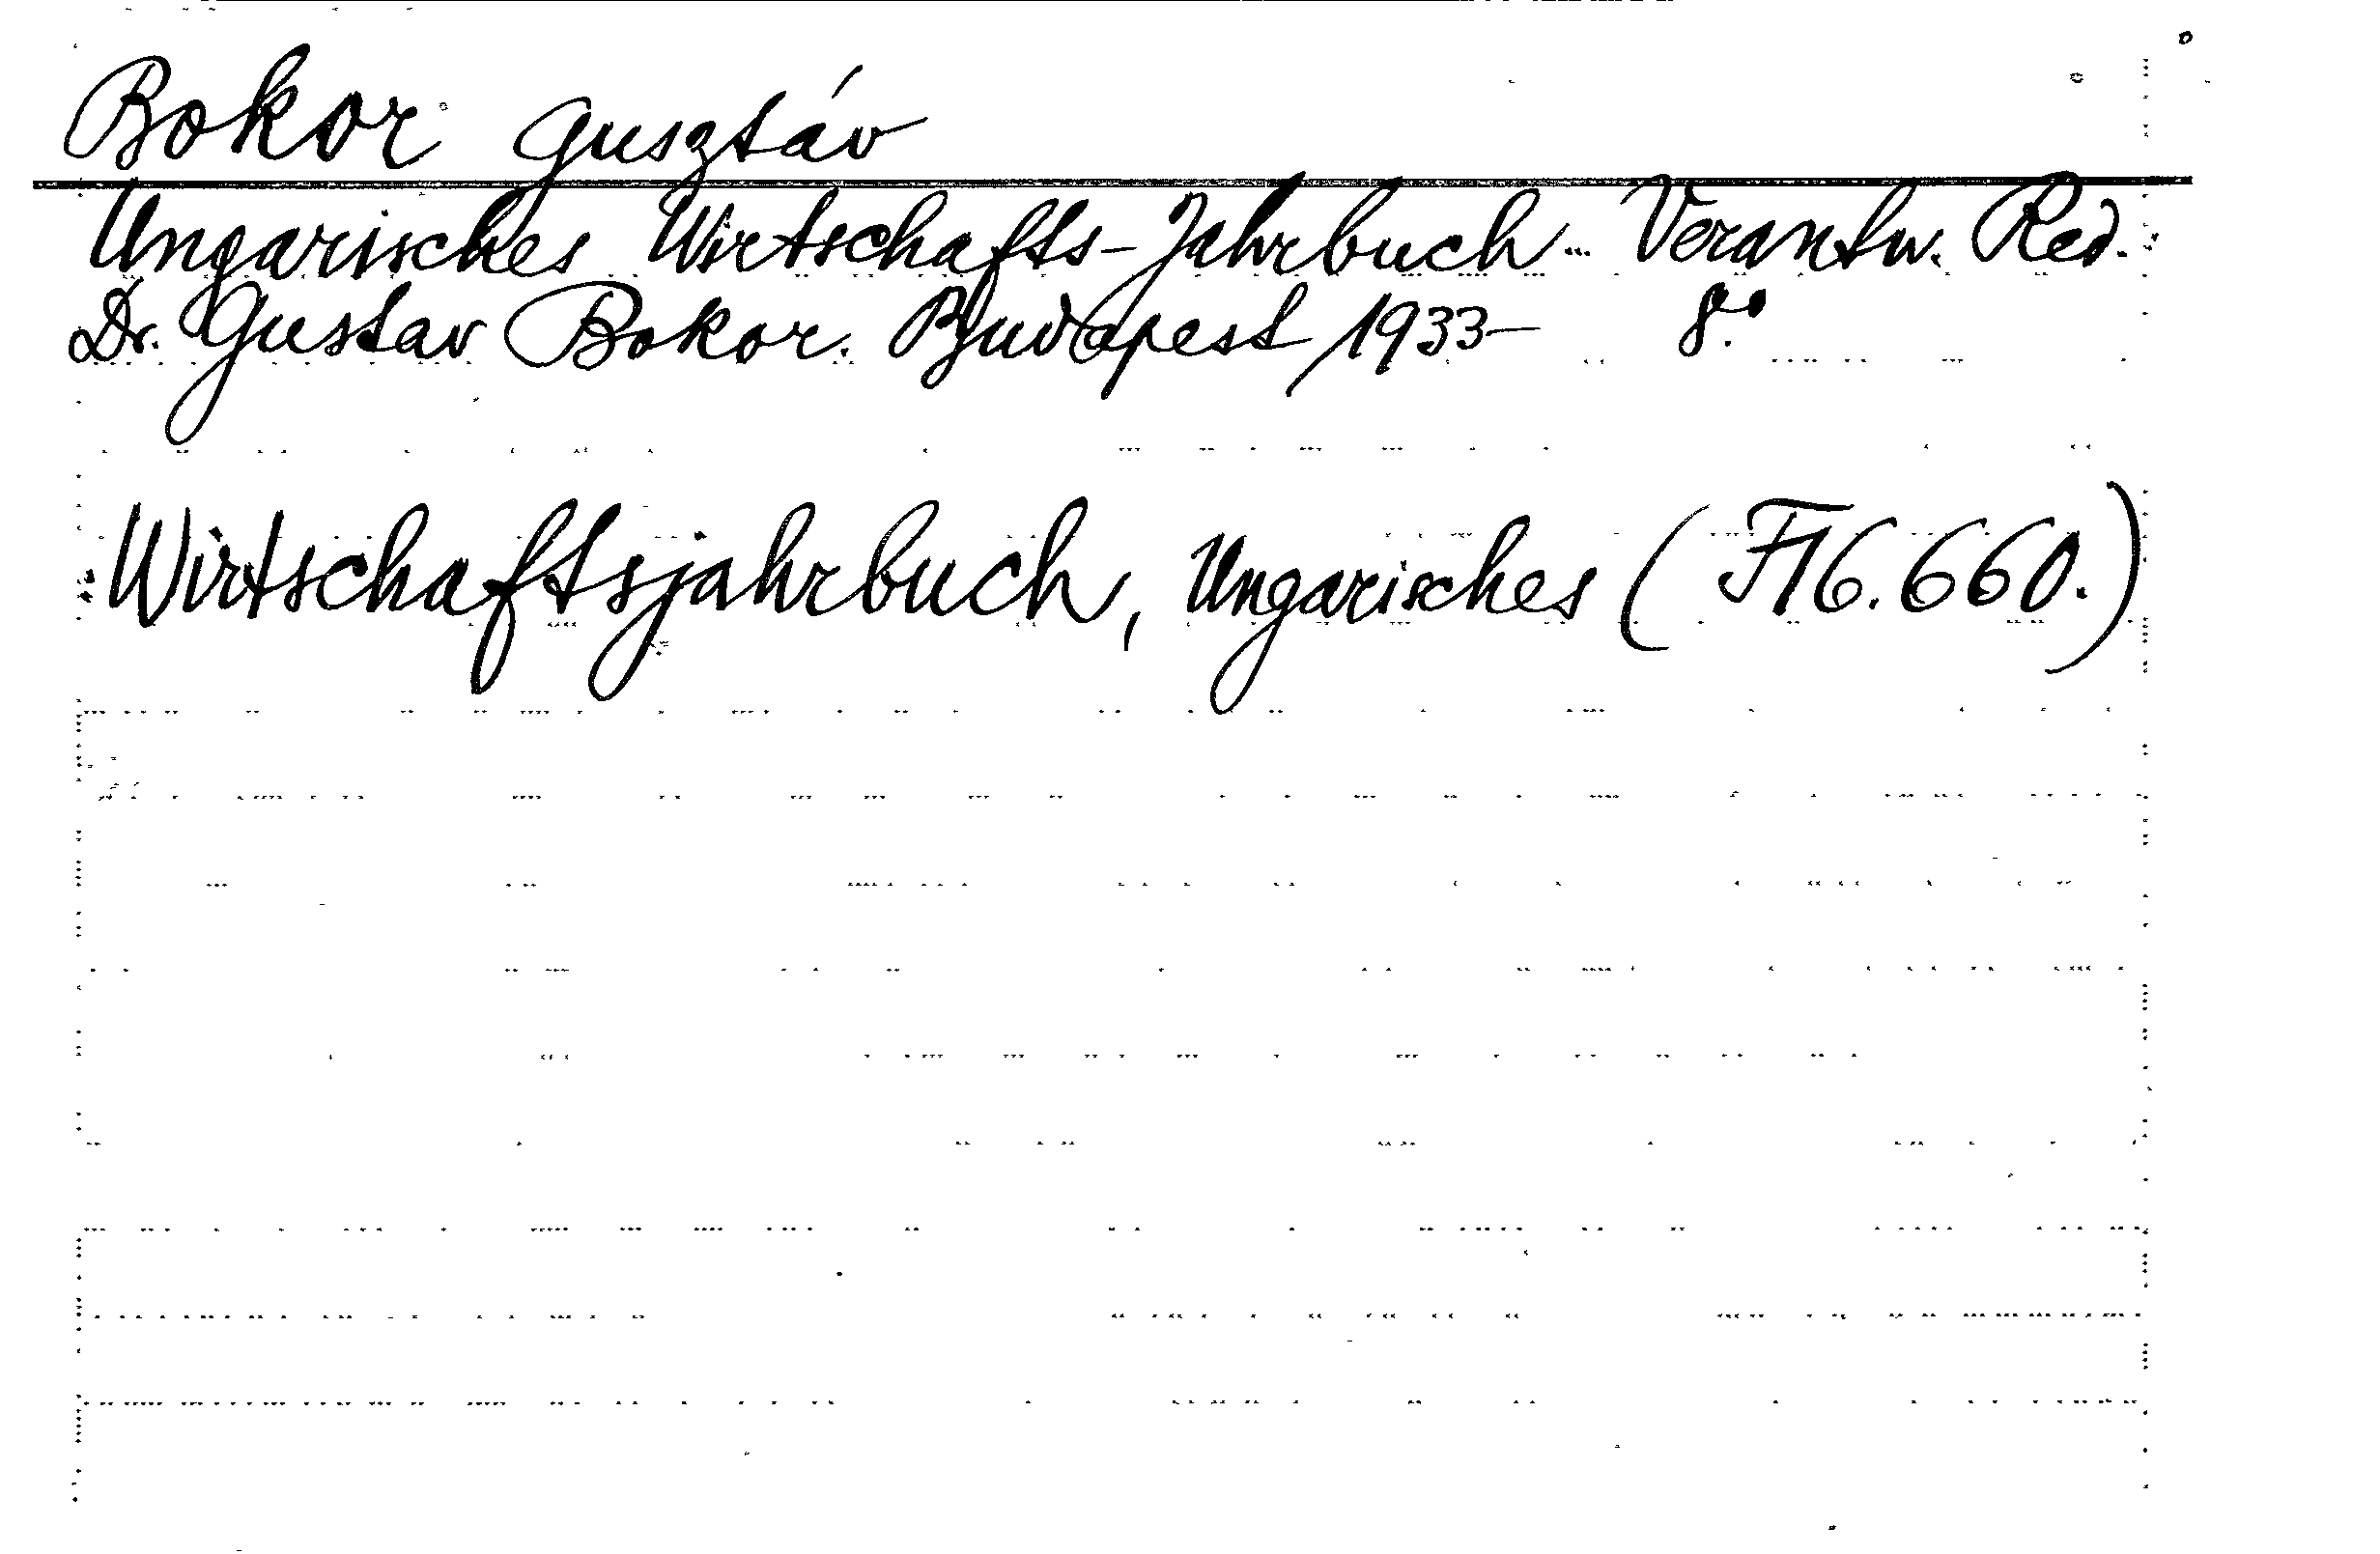 Bokor Gusztáv
Ungarisches Wirtschafts-Jahrbuch... Verantw. Red.
Dr. Gustav Bokor. Budapest, 1933- 8°.
Wirtschaftsjahrbuch, Ungarisches (F16.660.)